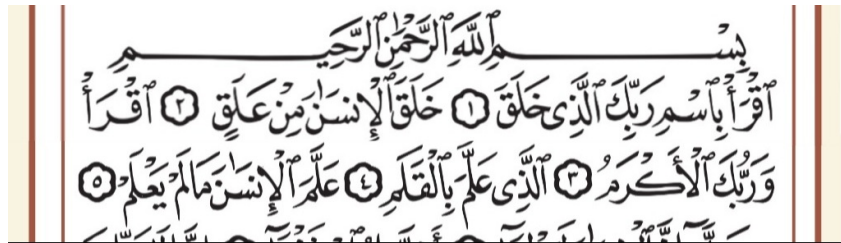 بِسْمِ ٱللَّهِ ٱلرَّحْمَٰنِ ٱلرَّحِيمِ
ٱقْرَأْ بِٱسْمِ رَبِّكَ ٱلَّذِى خَلَقَ ١ خَلَقَ ٱلْإِنسَٰنَ مِنْ عَلَقٍ ٢ ٱقْرَأْ
وَرَبُّكَ ٱلْأَكْرَمُ ٣ ٱلَّذِى عَلَّمَ بِٱلْقَلَمِ ٤ عَلَّمَ ٱلْإِنسَٰنَ مَا لَمْ يَعْلَمْ ٥